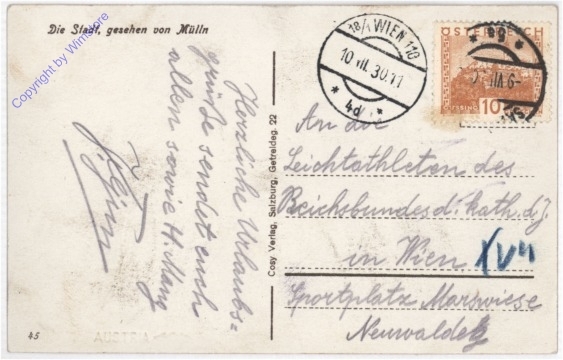 Die Stadt, gesehen von Mülln
Copyright by Winstore
Herzliche Urlaubs=
grüße sendet euch
allen sowie H. Mang
Cosy Verlag, Salzburg, Getreideg. 22
45
18/1 WIEN 110
10.VII.30.11
* 4d *
ÖSTERREICH
10
An die
Leichtathleten des
Reichsbundes d. kath. d. J.
in Wien XVII
Sportplatz Marswiese
Neuwaldegg